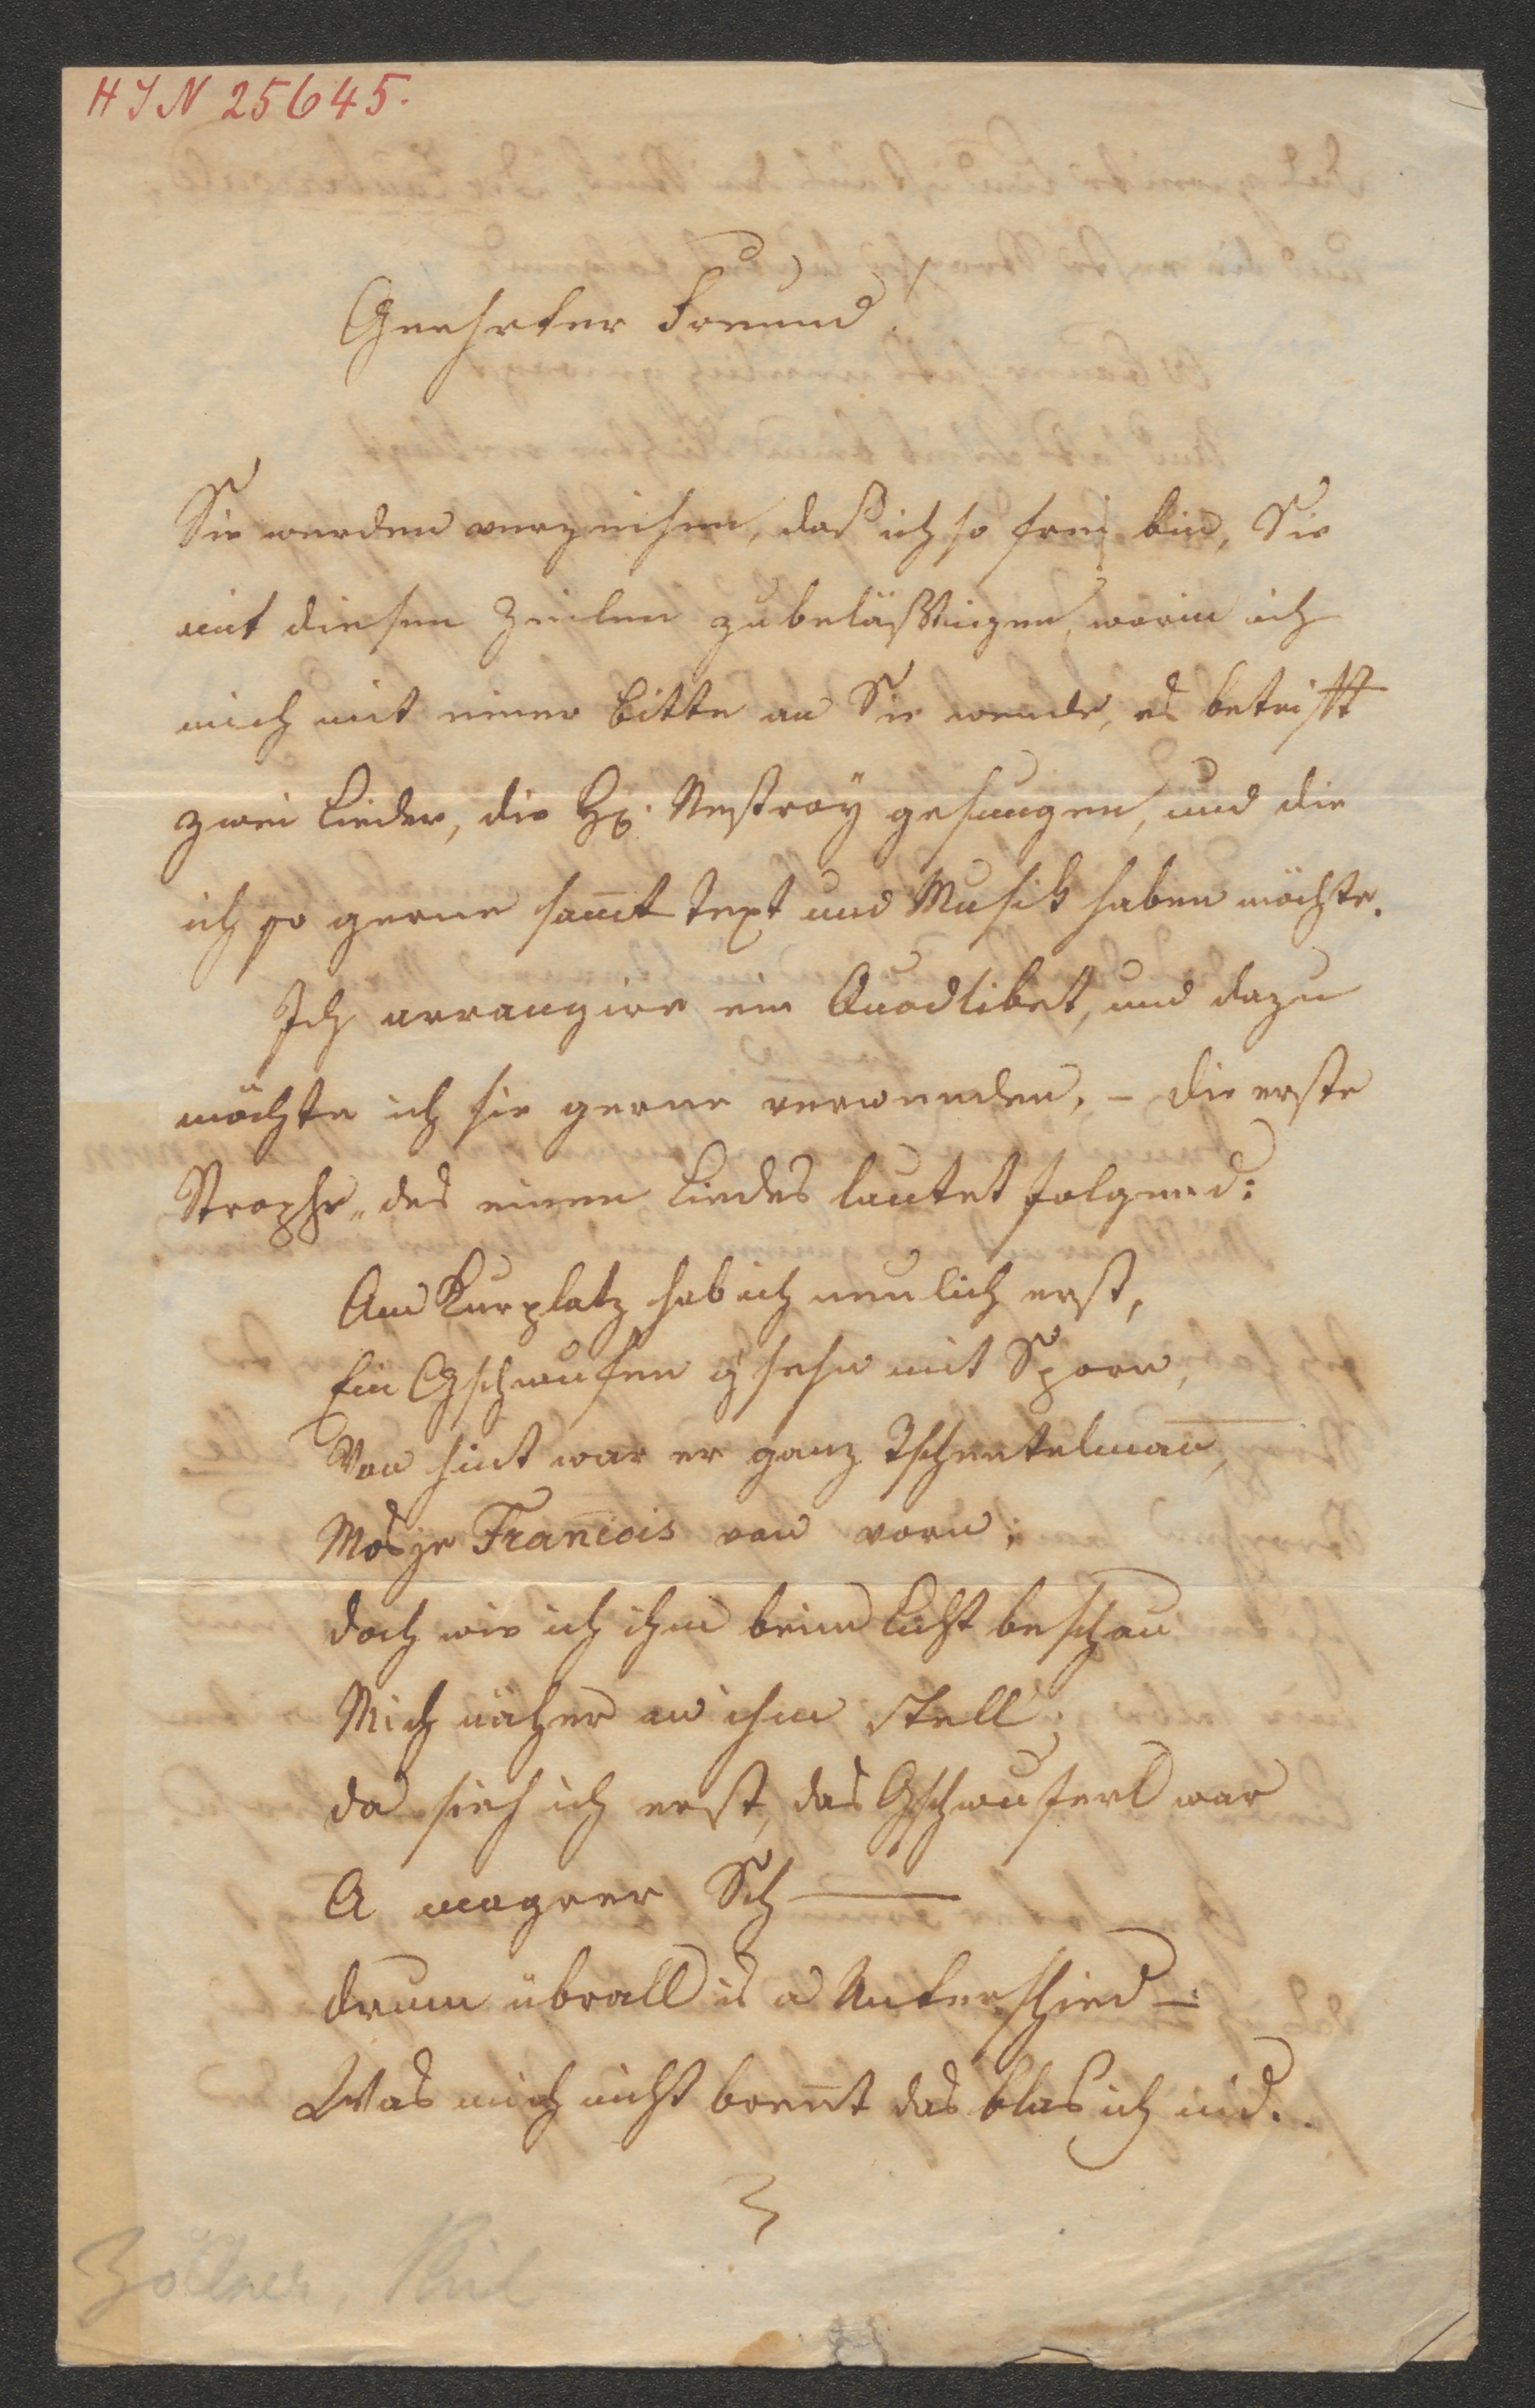 HIN 25645.
Geehrter Freund!
Sie werden verzeihen, daß ich so frei bin, Sie
mit diesen Zeilen zu beläßtigen, worin ich
mich mit einer Bitte an Sie wende, es betrifft
zwei Lieder, die H. Nestroy gesungen, und die
ich so gerne sam̅t Text und Musik haben möchte.
Ich arrangire ein Quodlibet, und dazu
möchte ich sie gerne verwenden. – Die erste
Strophe des einen Liedes lautet folgend:
Am Kurplatz hab ich neulich erst,
Ein Gschwufen g'sehn mit Sporn,
Von hint war er ganz Tschentelman̅,
Mosje Francois von vorn;
doch wie ich ihm beim Licht beschau
Mich näher an ihm stell;
da sieh ich erst, das Gschwuferl war
A magrer Sch——
drum übrall is a Unterschied –:
Was mich nicht bren̅t das blas ich nid.
Zöllner, Phil